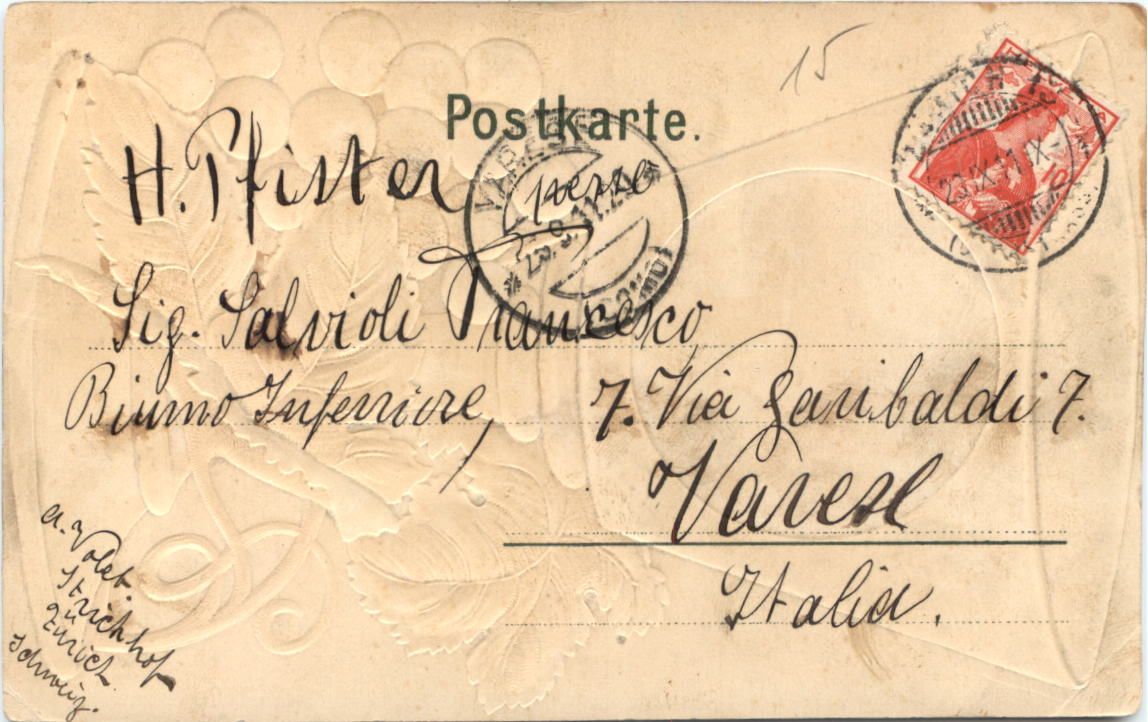 15
Postkarte.
H. Pfister
VARESE
(COMO)
Sig. Salvioli Francesco
Biumo Inferiore,
7. Via Garibaldi 7.
Varese
Italia.
A. Volet.
Strickhof
Zürich
Schweiz.